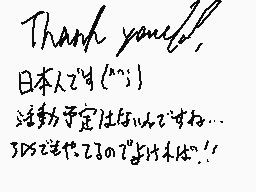 Thank you!!
日本人です(^^;)
活動予定はないんですね...
3DSでもやってるのでよければ!!